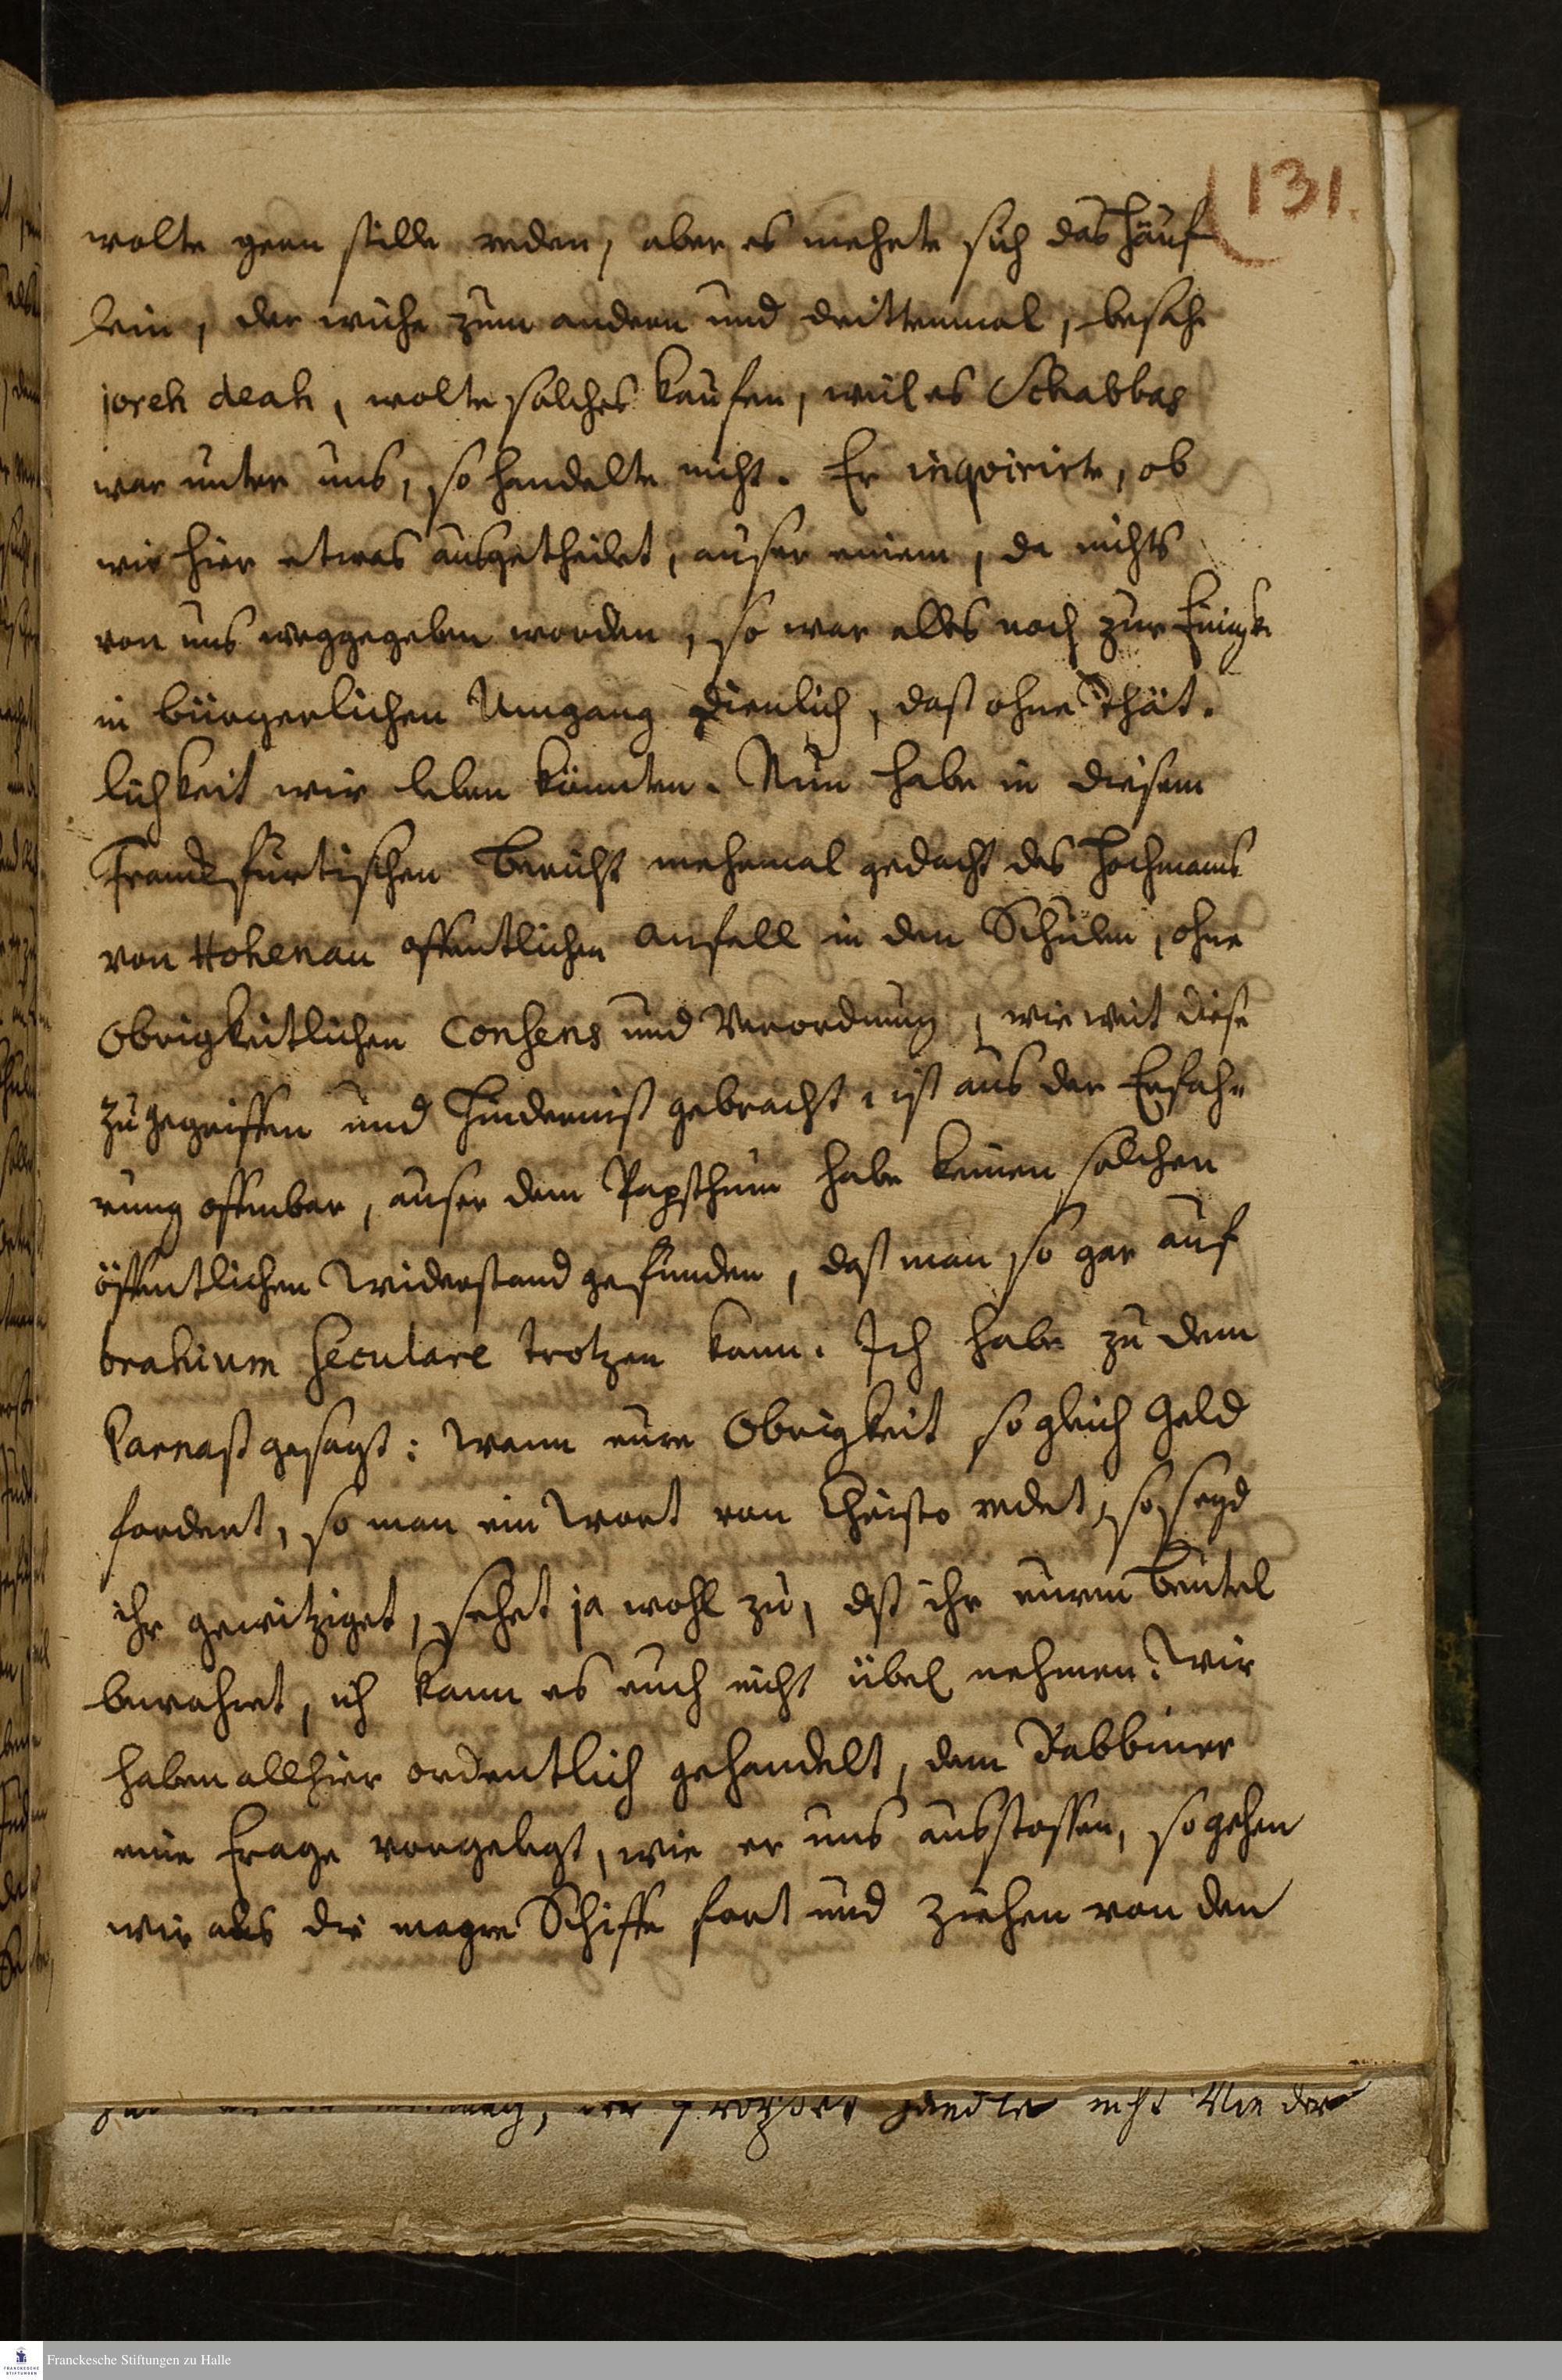 131.
wolte gern stille reden, aber es mehrte sich das Häuf
lein, der wiche zum andern und drittenmal, besahe
joreh deah, wolte solches kaufen, weil es Schabbas
war unter uns, so handelte nicht. Er inqvirirte, ob
wir hier etwas ausgetheilet, auser einem, da nichts
von uns weggegeben worden, so war alles noch zur Einigk.
in bürgerlichen Umgang dienlich, daß ohne Thät-
lichkeit wir leben könnten. Nun habe in diesem
Franckfurtischen Bericht mehrmal gedacht des Hochmanns
von Hohenau offentlichen Anfall in den Schulen, ohne
Obrigkeitlichen Consens und Verordnung, wie weit diese
zu gegriffen und Hinderniß gebracht, ist aus der Erfah-
rung offenbar, auser dem Papsthum habe keinen solchen
öffentlichen Widerstand gefunden, daß man so gar auf
brahium seculare trotzen kann. Ich habe zu dem
Parnaß gesagt: Wenn eure Obrigkeit so gleich Geld
fordert, so man ein Wort von Christo redet, so seyd
ihr gewitziget, sehet ja wohl zu, daß ihr euren Beutel
bewahret, ich kann es euch nicht übel nehmen. Wir
haben allhier ordentlich gehandelt, dem Rabbiner
eine Frage vorgelegt, wie er uns ausstossen, so gehen
wir als die Schiffe fort und ziehen von den
nicht Von der
Franckesche Stiftungen zu Halle